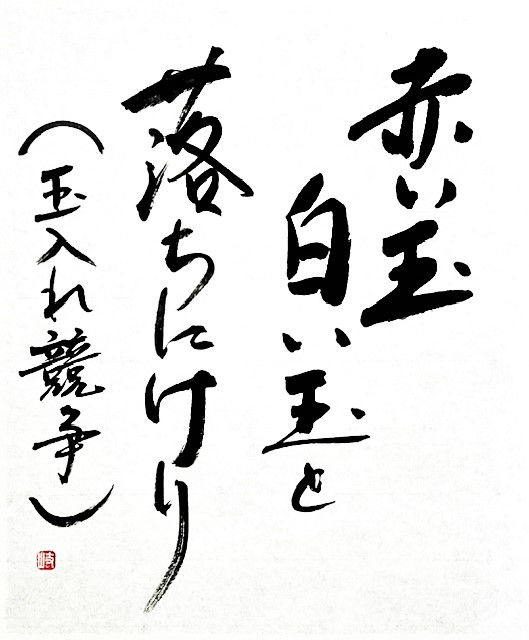 赤い玉
白い玉と
落ちにけり
（玉入れ競争）